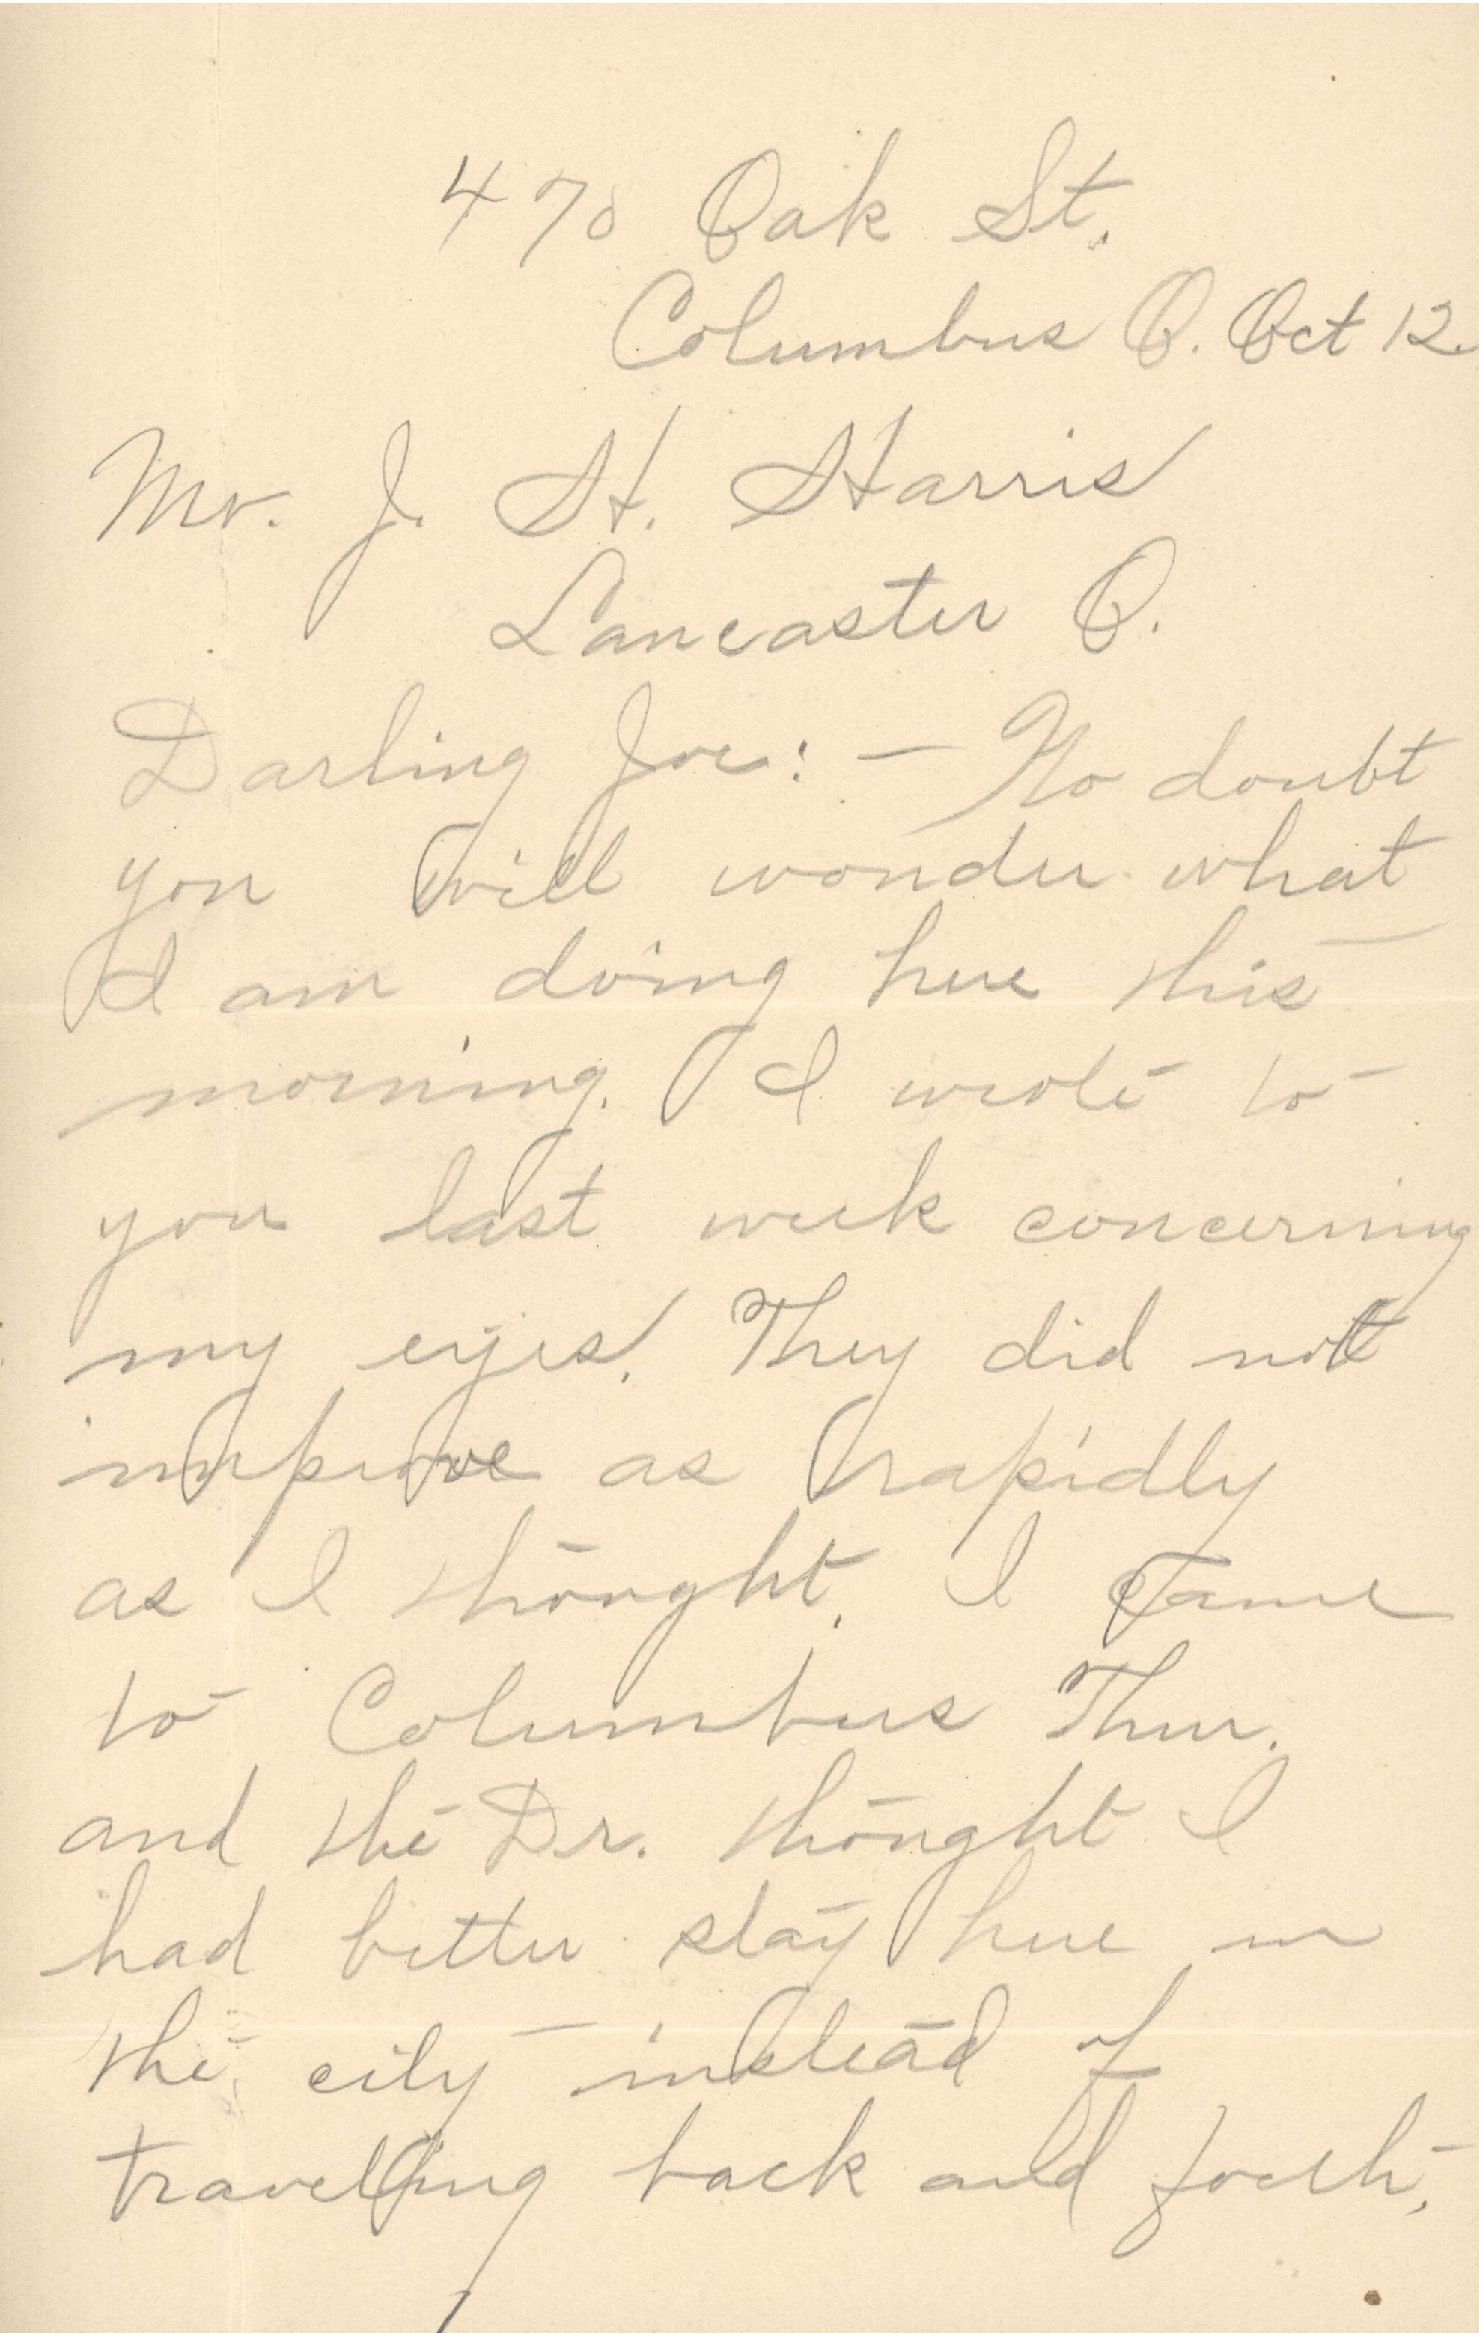 470 Oak St.
Columbus O. Oct 12.
Mr. J. H. Harris
Lancaster O.
Darling Joe: — No doubt
you will wonder what
I am doing here this
morning. I wrote to
you last week concerning
my eyes. They did not
improve as rapidly
as I thought. I came
to Columbus Thur.
and the Dr. thought I
had better stay here in
the city instead of
traveling back and forth.